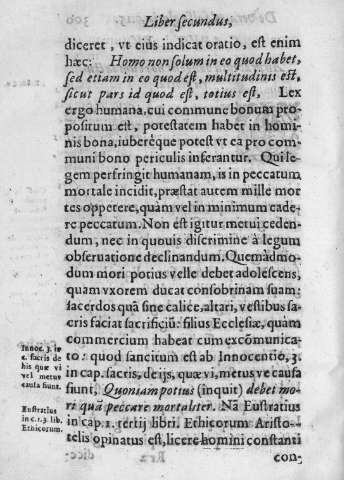 Liber secundus,
diceret, vt eius indicat oratio, est enim
hæc: Homo non solum in eo quod habet,
sed etiam in eo quod est, multitudinis est,
sicut pars id quod est, totius est. Lex
ergo humana, cui commune bonum pro-
positum est, potestatem habet in homi-
nis bona, iuberéque potest vt ea pro com
muni bono periculis inferantur. Qui le-
gem perfringit humanam, is in peccatum
mortale incidit, præstat autem mille mor
tes oppetere, quàm vel in minimum cade-
re peccatum. Non est igitur metui ceden-
dum, nec in quouis discrimine à legum
obseruatione declinandum. Quemàdmo-
dum mori potius velle debet adolescens,
quam vxorem ducat consobrinam suam:
sacerdos quã sine calice, altari, vestibus sa-
cris faciat sacrificiũ: filius Ecclesiæ, quàm
commercium habeat cum excõmunica-
to: quod sancitum est ab Innocentio, 3.
in cap. sacris, de ijs, quæ vi, metus ve causa
fiunt, Quoniam potius (inquit) debet mo-
ri quã peccare mortaliter. Nã Eustratius
in cap. 1. tertij libri. Ethicorum Aristo-
telis opinatus est, licere homini constanti
con-
Innoc. 3. in
c. sacris de
his quæ vi
vel metus
causa fiunt.
Eustratius
in c. 1. 3. lib.
Ethicorum.